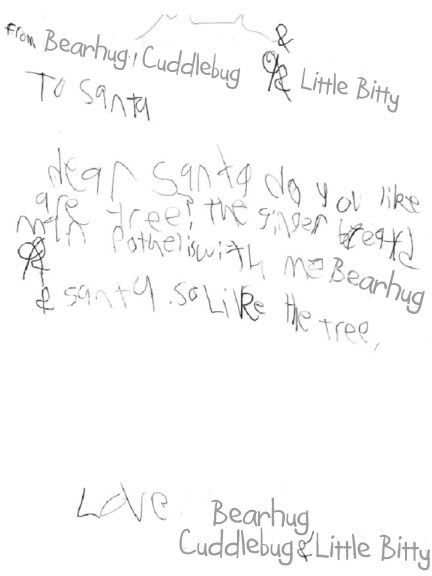 &
From Bearhug, Cuddlebug & Little Bitty
To Santa
dear Santa do you like
are tree? the ginger breard
man Pothelis with me Bearhug
& santa. so Like the tree,
Love Bearhug
Cuddlebug & Little Bitty